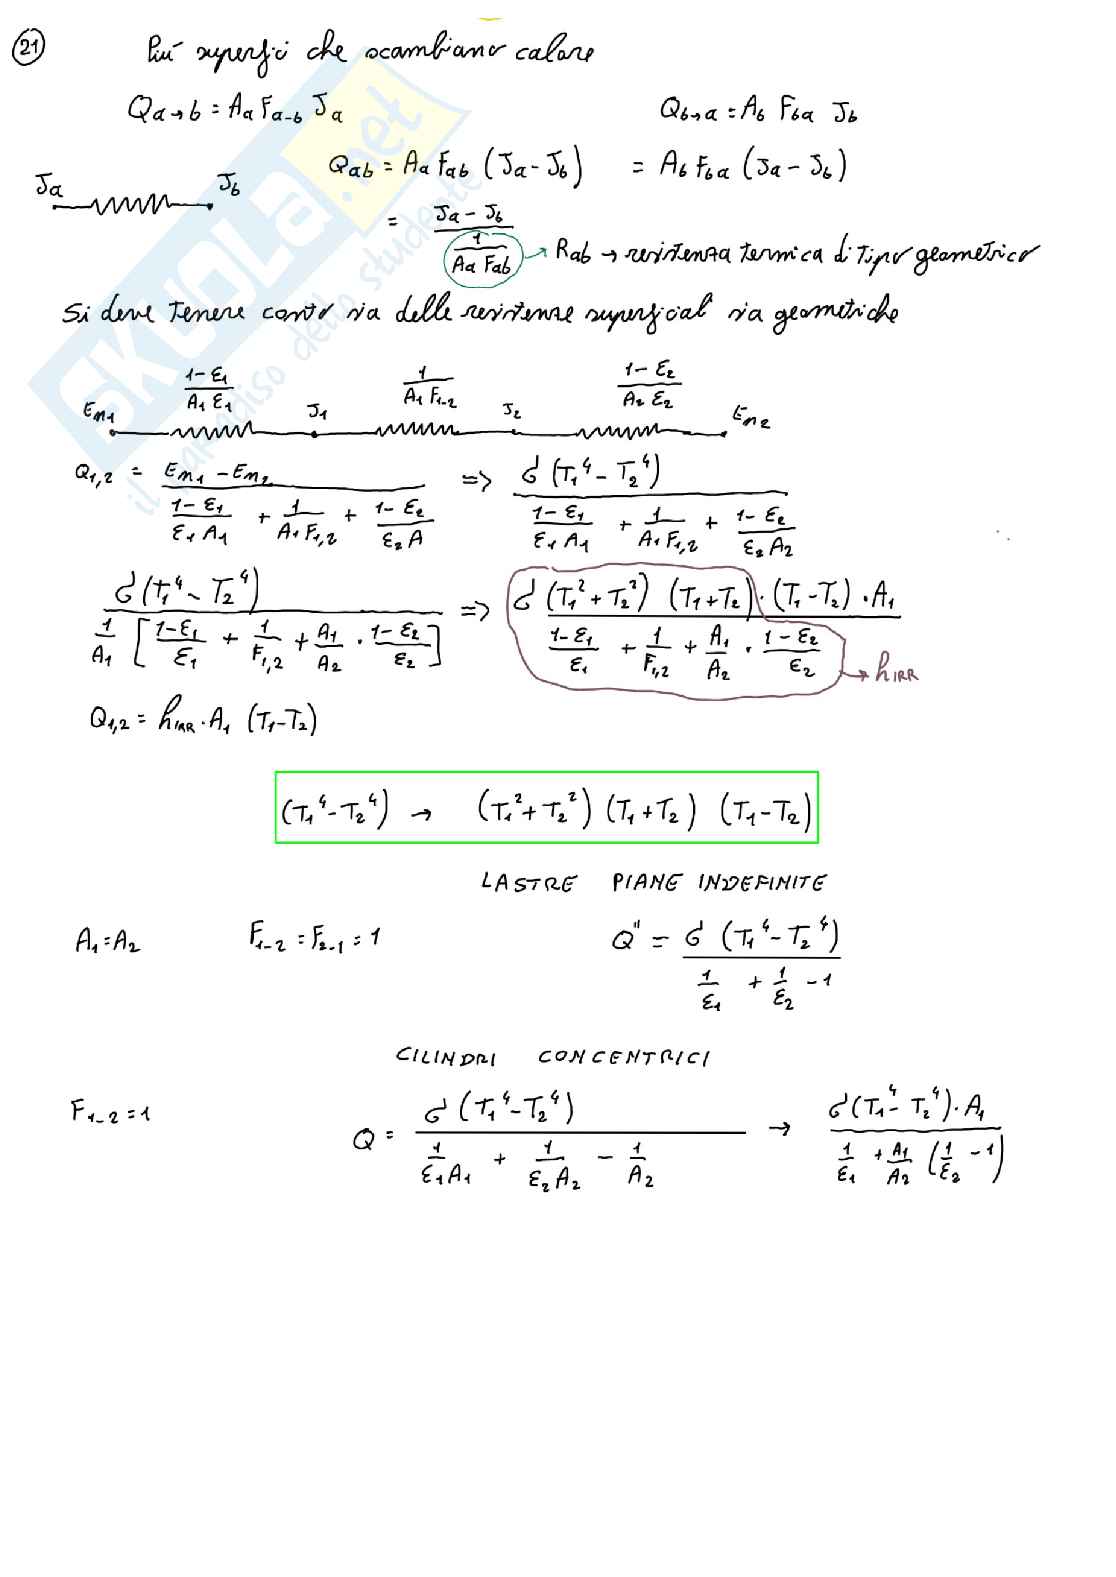 21 Più superfici che scambiano calore
Qa→b = Aa Fa-b Ja Qb→a = Ab Fba Jb
Ja Jb Qab = Aa Fab (Ja - Jb) = Ab Fba (Ja - Jb)
= (Ja - Jb) / (1 / (Aa Fab)) → Rab → resistenza termica di tipo geometrico
Si deve tenere conto sia delle resistenze superficiali sia geometriche
(1-ε1)/(A1 ε1) 1/(A1 F1-2) (1-ε2)/(A2 ε2)
En1 J1 J2 En2
Q1,2 = (En1 - En2) / ((1-ε1)/(ε1 A1) + 1/(A1 F1,2) + (1-ε2)/(ε2 A)) => σ (T1⁴ - T2⁴) / ((1-ε1)/(ε1 A1) + 1/(A1 F1,2) + (1-ε2)/(ε2 A2))
σ (T1⁴ - T2⁴) / (1/A1 [(1-ε1)/ε1 + 1/F1,2 + A1/A2 · (1-ε2)/ε2]) => σ (T1² + T2²) (T1 + T2) · (T1 - T2) · A1 / ((1-ε1)/ε1 + 1/F1,2 + A1/A2 · (1-ε2)/ε2) → hIRR
Q1,2 = hIRR · A1 (T1 - T2)
(T1⁴ - T2⁴) → (T1² + T2²) (T1 + T2) (T1 - T2)
LASTRE PIANE INDEFINITE
A1 = A2 F1-2 = F2-1 = 1 Q'' = σ (T1⁴ - T2⁴) / (1/ε1 + 1/ε2 - 1)
CILINDRI CONCENTRICI
F1-2 = 1 Q = σ (T1⁴ - T2⁴) / (1/(ε1 A1) + 1/(ε2 A2) - 1/A2) → σ (T1⁴ - T2⁴) · A1 / (1/ε1 + A1/A2 (1/ε2 - 1))
SKUOLA.net
il paradiso dello studente